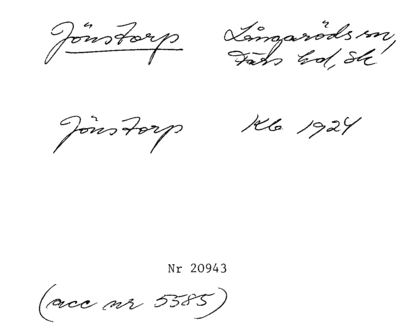 Jönstorp Långaröds sn,
Färs hd, Sk
Jönstorp Kb 1924
Nr 20943
(acc nr 5585)